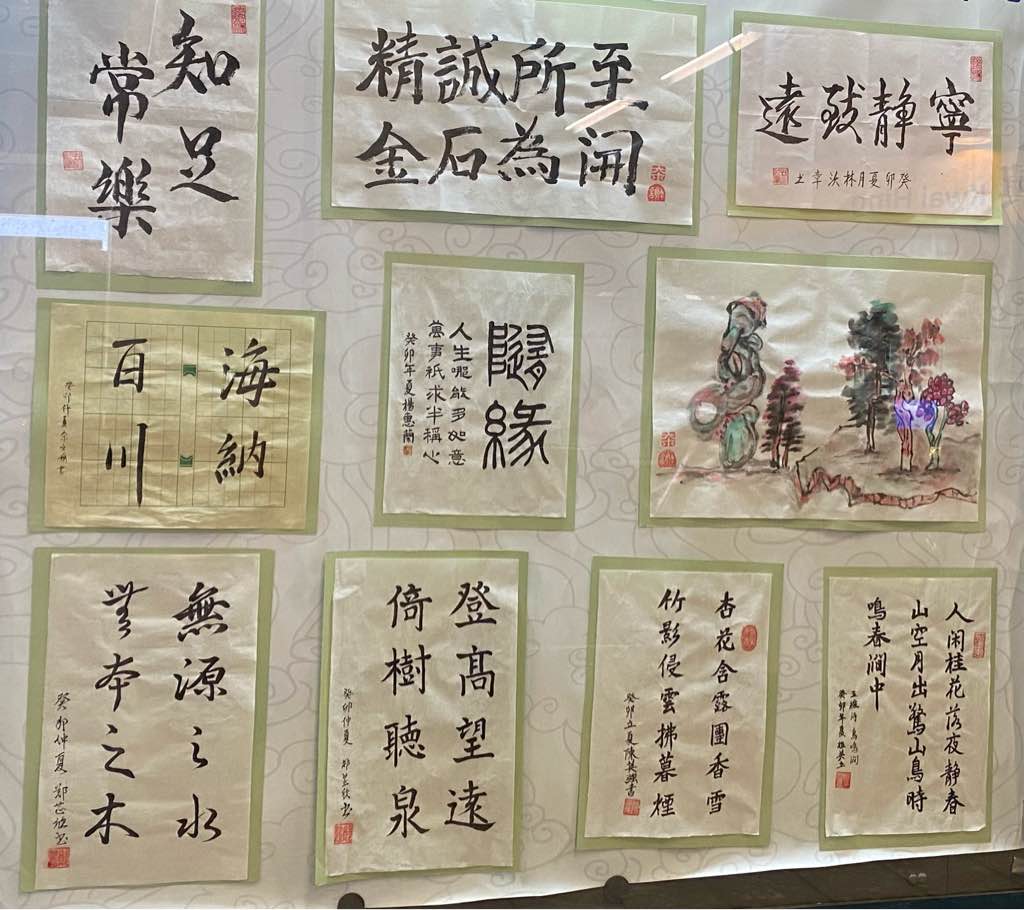 知足
常樂
精誠所至
金石為開
寧静致遠
癸卯夏月林
Kwai Hing
海納
百川
癸卯仲夏
隨緣
人生嘅能多如意
萬事祇求半稱心
癸卯年夏楊惠蘭
無源之水
無本之木
癸卯仲夏
登髙望遠
倚樹聽泉
癸卯仲夏
杏花含露團香雪
竹影侵雲拂暮煙
癸卯立夏陳
人闲桂花落夜静春
山空月出驚山鳥時
鳴春澗中
王維詩鳥鳴澗
癸卯年夏